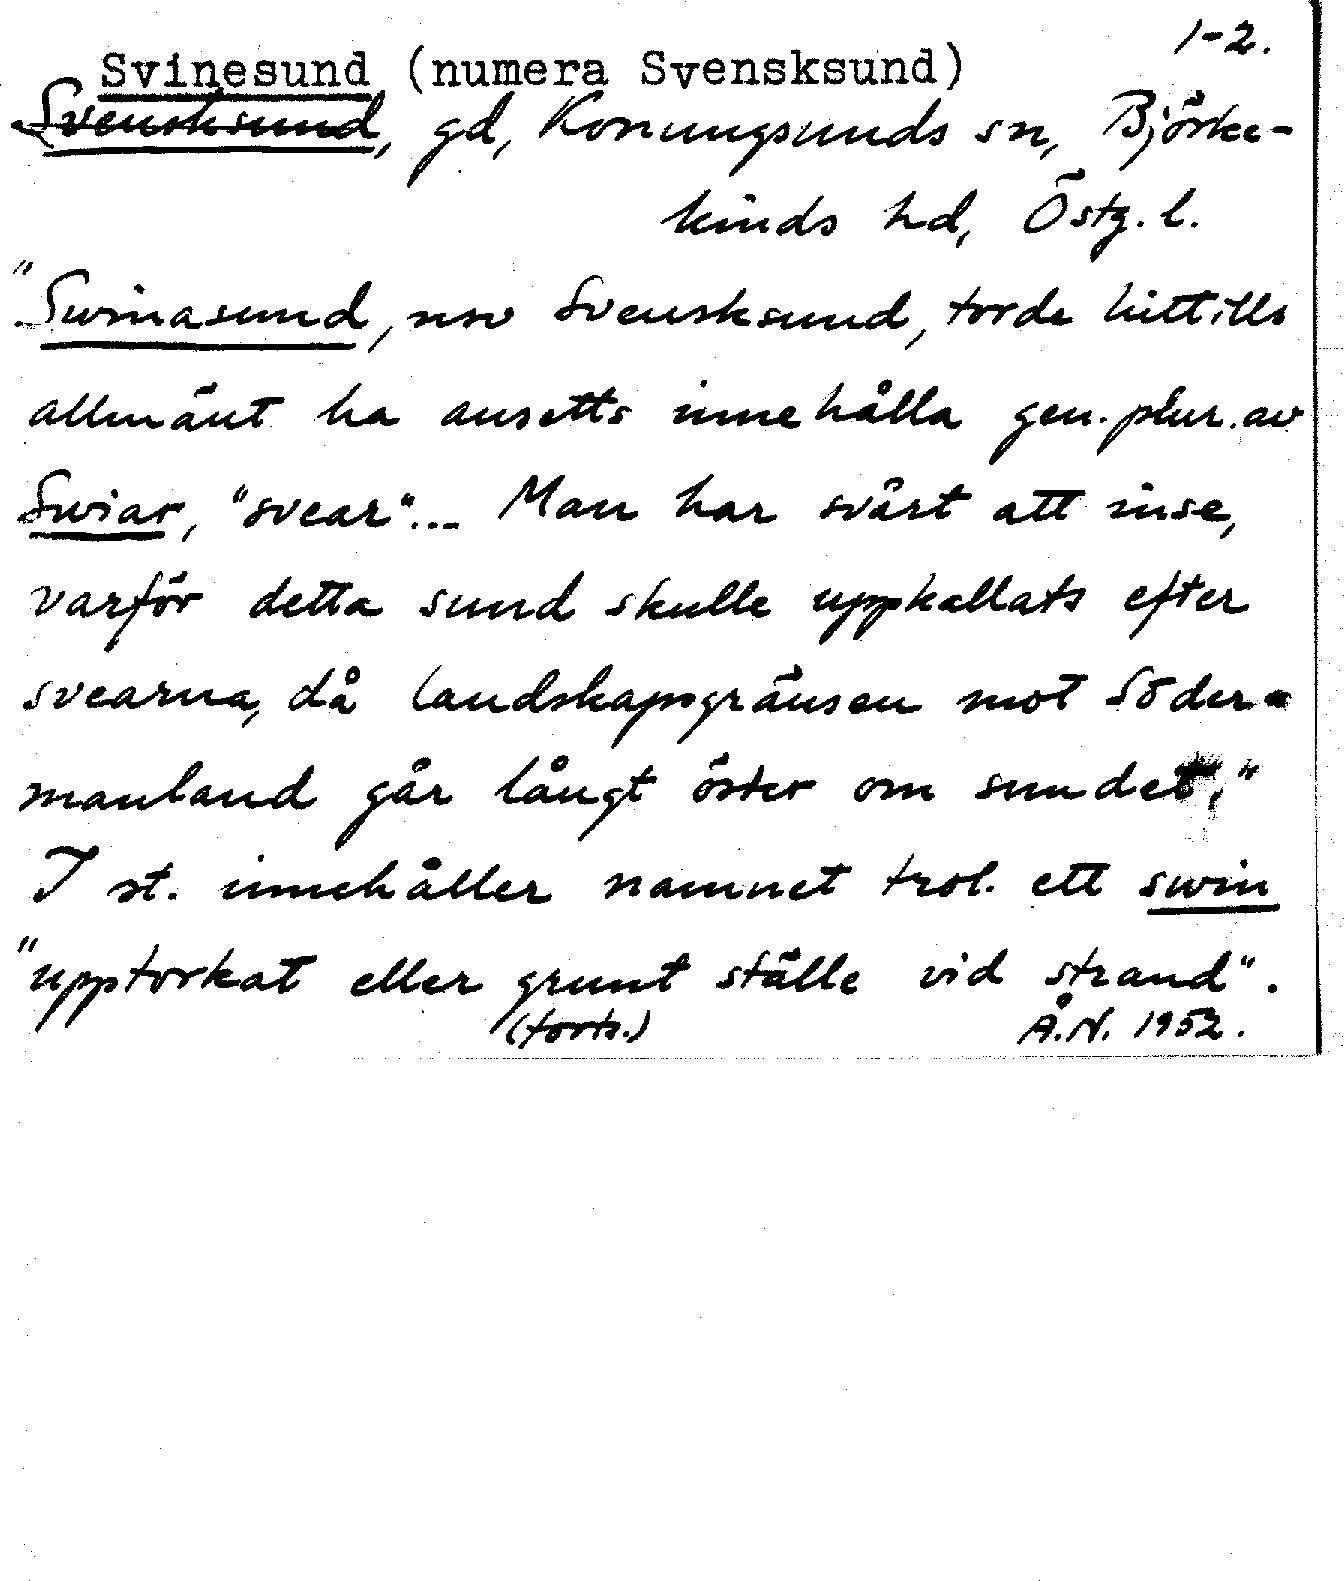 1-2.
Svinesund (numera Svensksund)
Svensksund, gd, Konungsunds sn, Björke-
kinds hd, Östg. l.
"Swinasund, nsv Svensksund, torde hittills
allmänt ha ansetts innehålla gen. plur. av
Swiar, "svear"... Man har svårt att inse,
varför detta sund skulle uppkallats efter
svearna, då landskapsgränsen mot Söder-
manland går långt öster om sundet."
I st. innehåller namnet trol. ett swin
"upptorkat eller grunt ställe vid strand".
(forts.) Å.N. 1952.